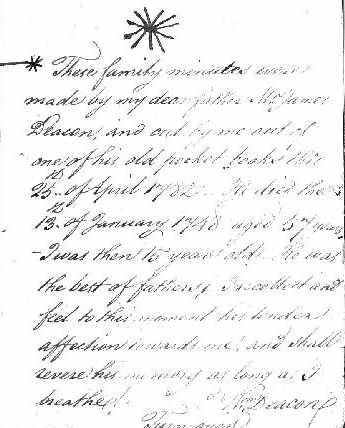 * These family minutes were
made by my dear father Mr. James
Deacon, and cut by me out of
one of his old pocket books this
25th. of April 1782. He died the
13th. of January 1748 aged 57 years,
- I was then 15 years old. He was
the best of fathers, I recollect and
feel to this moment his tender
affection towards me, and shall
revere his memory as long as I
breathe. Wm. Deacon
Turn over